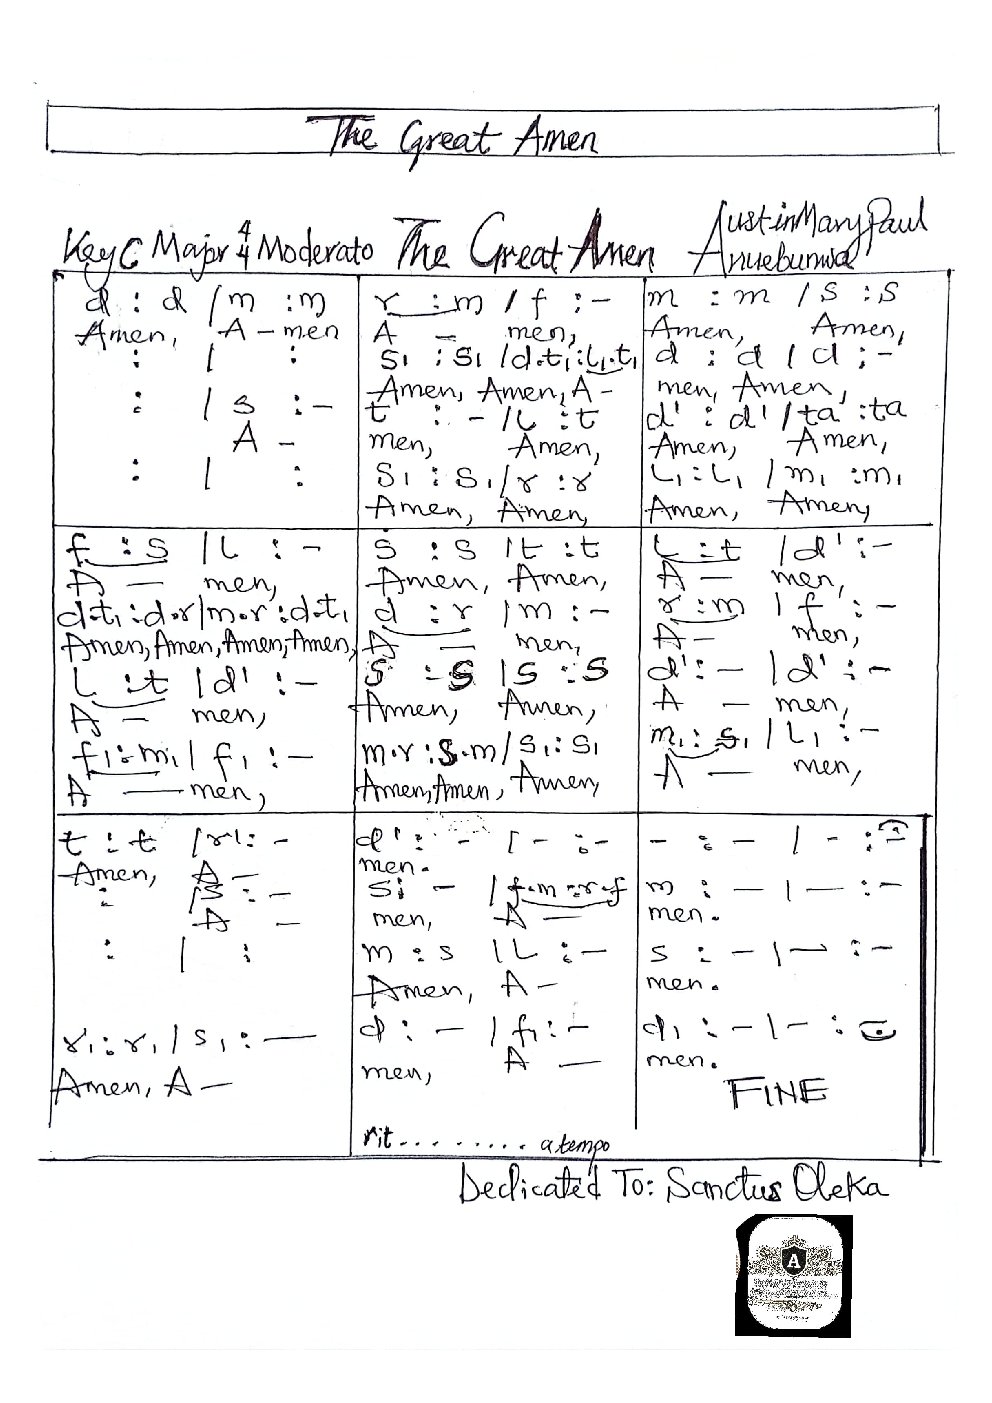 The Great Amen
Key C Major 4/4 Moderato The Great Amen AustinMaryPaul Anuebunwa
d : d / m : m
Amen, A - men
: / :
: / s : -
A -
: / :
r : m / f : -
A - men,
S₁ : S₁ / d.t₁ : l₁.t₁
Amen, Amen, A -
t : - / l : t
men, Amen,
S₁ : S₁ / r : r
Amen, Amen,
m : m / s : s
Amen, Amen,
d : d / d : -
men, Amen,
d' : d' / ta : ta
Amen, Amen,
L₁ : L₁ / m₁ : m₁
Amen, Amen,
f : s / l : -
A - men,
d.t₁ : d.r / m.r : d.t₁
Amen, Amen, Amen, Amen,
l : t / d' : -
A - men,
f₁ : m₁ / f₁ : -
A - men,
s : s / t : t
Amen, Amen,
d : r / m : -
A - men,
s : s / s : s
Amen, Amen,
m.r : s.m / s₁ : s₁
Amen, Amen, Amen,
l : t / d' : -
A - men,
r : m / f : -
A - men,
d' : - / d' : -
A - men,
m₁ : s₁ / l₁ : -
A - men,
t : t / r' : -
Amen, A -
: / s : -
A -
: / :
r₁ : r₁ / s₁ : -
Amen, A -
d' : - / - : -
men.
s : - / f.m : r.f
men, A -
m : s / l : -
Amen, A -
d : - / f₁ : -
men, A -
rit......... a tempo
- : - / - : -
m : - / - : -
men.
s : - / - : -
men.
d₁ : - / - : -
men.
FINE
Dedicated To: Sanctus Oleka
A